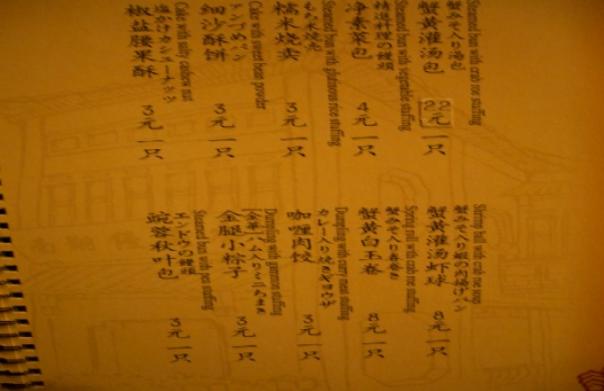 Steamed bun with crab roe stuffing
蟹みそ入り湯包
蟹黄灌汤包 22元一只
Steamed bun with vegetable stuffing
精進料理の饅頭
净素菜包 4元一只
Steamed bun with glutinous rice stuffing
もち米焼売
糯米烧卖 3元一只
Cake with sweet bean powder
细沙酥饼 3元一只
Cake with salty cashew nut
塩かけカシューナッツ
椒盐腰果酥 3元一只
Shrimp ball with crab roe soup
蟹みそ入り蝦の肉揚げパン
蟹黄灌汤虾球 8元一只
Spring roll with crab roe stuffing
蟹みそ入り春巻き
蟹黄白玉卷 8元一只
Dumpling with curry meat stuffing
カレー入り焼きギョウザ
咖喱肉饺 3元一只
Dumpling with gammon stuffing
(金華)ハム入りミニちまき
金腿小粽子 3元一只
Steamed bun with pea stuffing
エンドウの饅頭
豌蓉秋叶包 3元一只